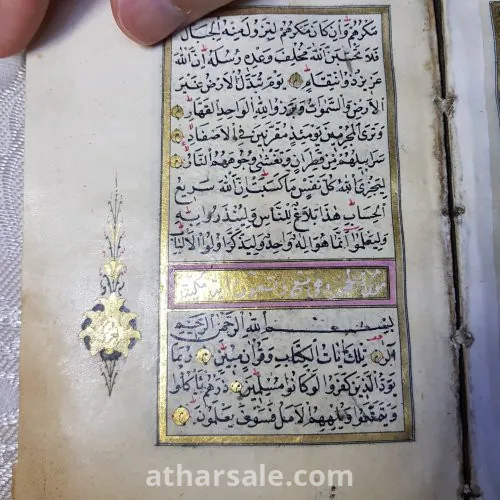 مَكْرُهُمْ وَإِنْ كَانَ مَكْرُهُمْ لِتَزُولَ مِنْهُ الْجِبَالُ
فَلَا تَحْسَبَنَّ اللَّهَ مُخْلِفَ وَعْدِهِ رُسُلَهُ إِنَّ اللَّهَ
عَزِيزٌ ذُو انْتِقَامٍ يَوْمَ تُبَدَّلُ الْأَرْضُ غَيْرَ
الْأَرْضِ وَالسَّمَوَاتُ وَبَرَزُوا لِلَّهِ الْوَاحِدِ الْقَهَّارِ
وَتَرَى الْمُجْرِمِينَ يَوْمَئِذٍ مُقَرَّنِينَ فِي الْأَصْفَادِ
سَرَابِيلُهُمْ مِنْ قَطِرَانٍ وَتَغْشَى وُجُوهَهُمُ النَّارُ
لِيَجْزِيَ اللَّهُ كُلَّ نَفْسٍ مَا كَسَبَتْ إِنَّ اللَّهَ سَرِيعُ
الْحِسَابِ هَذَا بَلَاغٌ لِلنَّاسِ وَلِيُنْذَرُوا بِهِ
وَلِيَعْلَمُوا أَنَّمَا هُوَ إِلَهٌ وَاحِدٌ وَلِيَذَّكَّرَ أُولُوا الْأَلْبَابِ
سورة الحجر وهي تسع وتسعون آية مكية
بِسْمِ اللَّهِ الرَّحْمَنِ الرَّحِيمِ
الر تِلْكَ آيَاتُ الْكِتَابِ وَقُرْآنٍ مُبِينٍ رُبَمَا
يَوَدُّ الَّذِينَ كَفَرُوا لَوْ كَانُوا مُسْلِمِينَ ذَرْهُمْ يَأْكُلُوا
وَيَتَمَتَّعُوا وَيُلْهِهِمُ الْأَمَلُ فَسَوْفَ يَعْلَمُونَ
atharsale.com